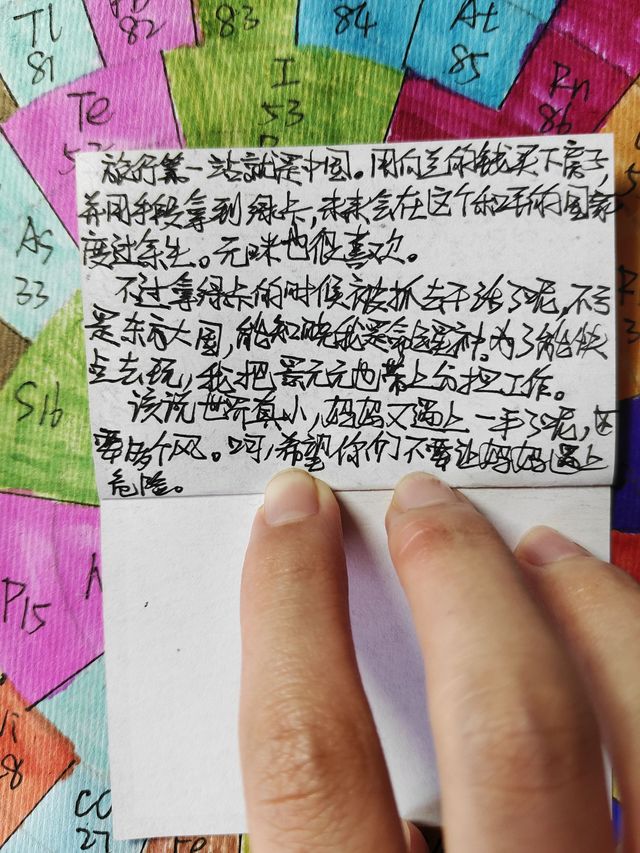 Tl
81
82
83
84
At
85
Te
I
53
Rn
86
As
33
S16
P15
27
旅行第一站就是中国。用向兰的钱买下房子,
并用手段拿到绿卡,未来会在这个和平的国家
度过余生。元咪也很喜欢。
不过拿绿卡的时候被抓去干活了呢,不亏
是东方大国,能知晓我是命运星神。为了能快
点去玩,我把景元元也带上分担工作。
该说世界真小,妈妈又遇上一手了呢,
要哆个风。呵,希望你们不要让妈妈遇上
危险。